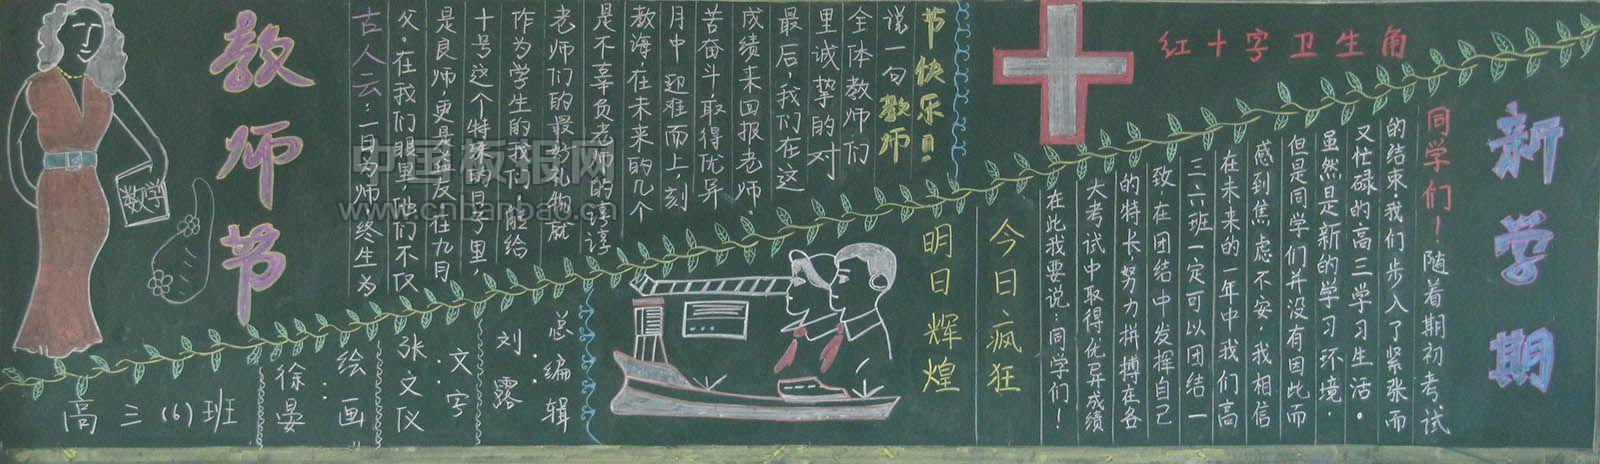 教师节
数学
古人云：一日为师终生为
父。在我们眼里他们不仅
是良师，更是益友在九月
十号这个特殊的日子里，
作为学生的我们，能给
老师们的最好礼物就
是不辜负老师的谆谆
教海，在未来的几个
月中迎难而上，刻
苦奋斗，取得优异
成绩来回报老师。
最后，我们在这
里诚挚的对
全体教师们
说一句教师
节快乐！
红十字卫生角
新学期
同学们！随着期初考试
的结束我们步入了紧张而
又忙碌的高三学习生活。
虽然是新的学习环境，
但是同学们并没有因此而
感到焦虑不安，我相信
在未来的一年中我们高
三六班一定可以团结一
致在团结中发挥自己
的特长，努力拼搏在各
大考试中取得优异成绩
在此我要说：同学们！
今日、疯狂
明日、辉煌
总编辑：
刘露
文字：
张文仪
绘画：
徐晏
高三(6)班
中国板报网
www.cnbanbao.cn